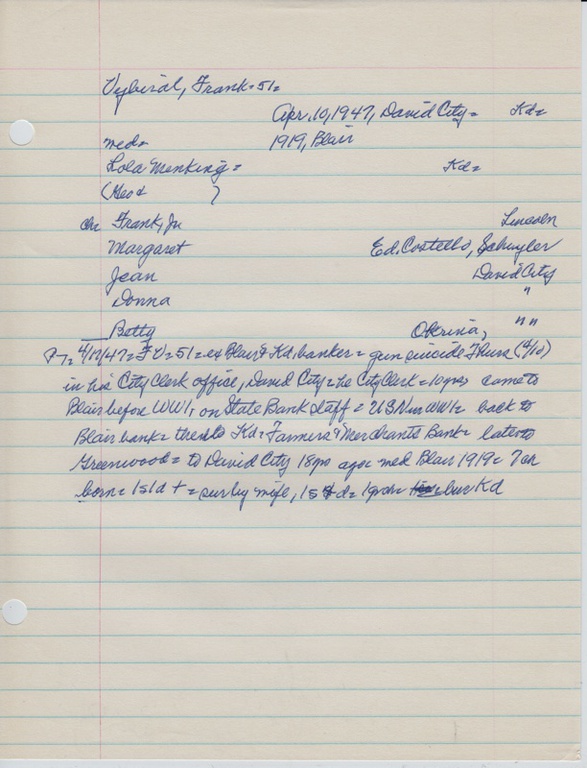 Vybiral, Frank = 51 =
Apr. 10, 1947, David City = Kd =
med = 1919, Blair
Lola Menking = Kd =
(Geo & )
ch Frank, Jr Lincoln
Margaret Ed. Costello, Schuyler
Jean David City
Donna "
Betty " "
4/17/47 = F V = 51 = ex Blair & Kd. banker = gun suicide Thurs (4/10)
in his City Clerk office, David City = he City Clerk = 10 yrs came to
Blair before WW1, on State Bank staff = USN in WW1 = back to
Blair bank = then to Kd = Farmers & Merchants Bank = later to
Greenwood = to David City 18 yrs ago = med Blair 1919 = 7 ch
born = 1s 1d + = sur by wife, 1s 4d = 1 grch = bur Kd